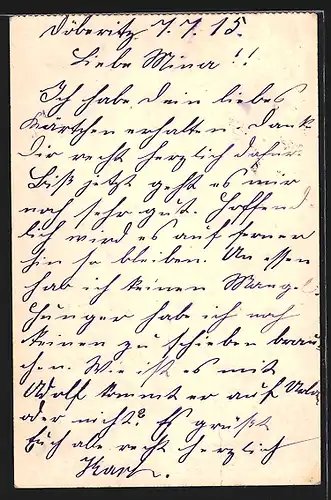 Döberitz 7.7.15.
Liebe Mina!!
Ich habe Dein liebes
Kärtchen erhalten. Dank
Dir recht herzlich dafür.
Bis jetzt geht es mir
noch sehr gut. Hoffend-
lich wird es auf ferner
hin so bleiben. An essen
hab ich keinen Mangel
Hunger hab ich noch
keinen zu schieben brau-
chen. Wie ist es mit
Adolf kommt er auf Urla
oder nicht? Es grüßt
Euch alle recht herzlich
Karl.